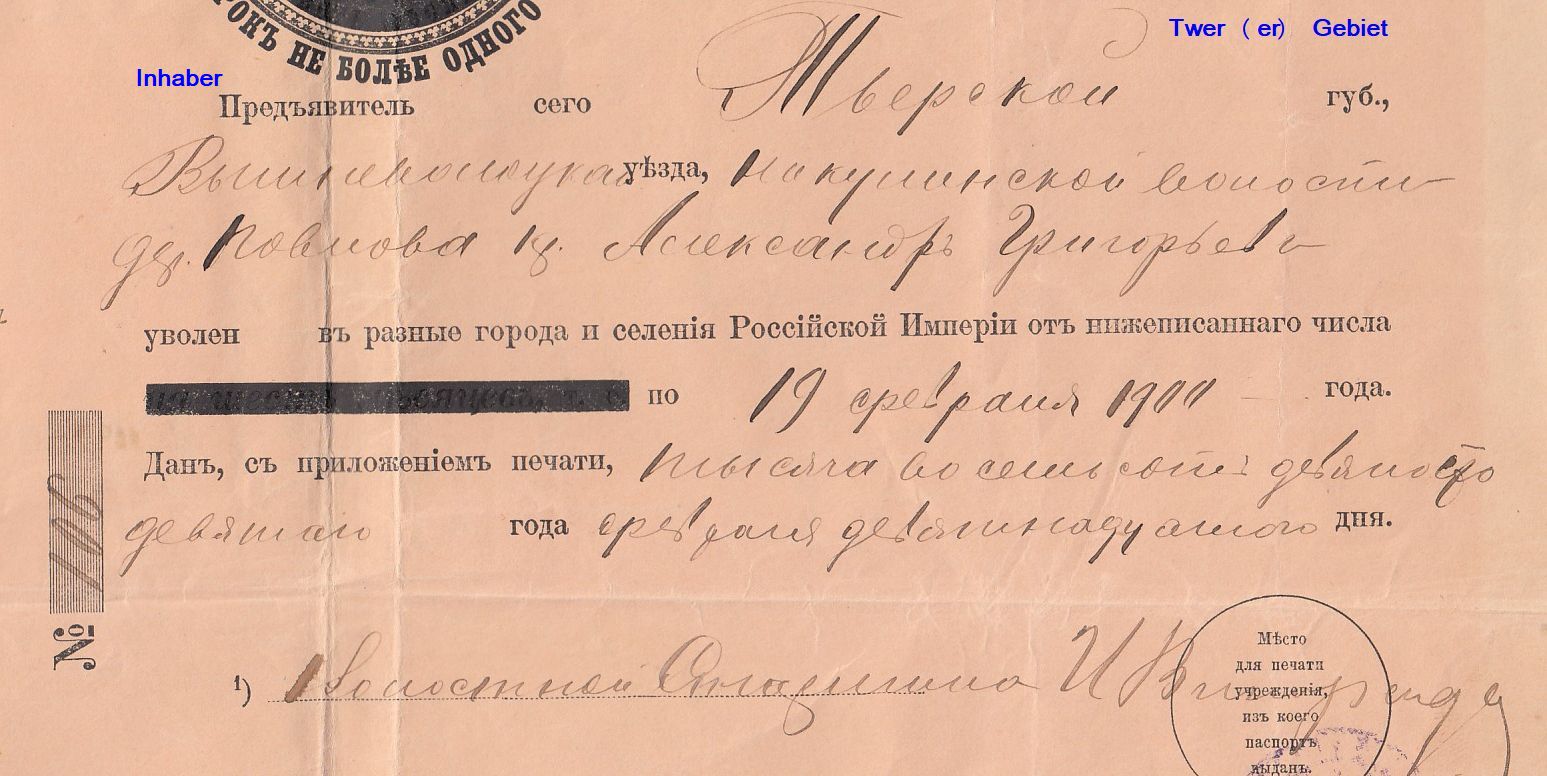 РОКЪ НЕ БОЛѢЕ ОДНОГО
Twer ( er) Gebiet
Inhaber
Предъявитель сего Тверской губ.,
Вышневолоцкаго уѣзда, волости
дер. кр. Александръ Григорьевъ
уволен въ разные города и селенія Россійской Имперіи отъ нижеписаннаго числа
по 19 февраля 1900 года.
Данъ, съ приложеніемъ печати, тысяча восемьсотъ девяносто
девятаго года февраля девятнадцатого дня.
№ 106
1) Волостной Старшина И
Мѣсто
для печати
учрежденія,
изъ коего
паспортъ
выданъ.